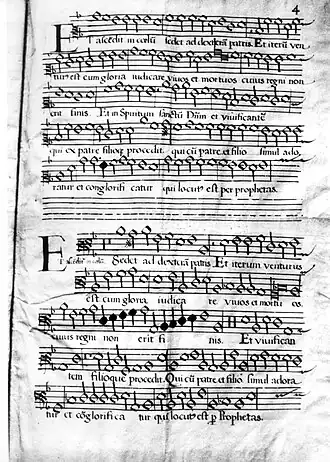 4
Et ascedit in coelū sedet ad dexterā patris. Et iterū ven
turus est cum gloria iudicare viuos et mortuos cuius regni non
erit finis. Et in Spiritum sanctū Dñm et viuificante
qui ex patre filioq procedit. qui cū patre et filio simul ado
ratur et conglorifi catur qui locut est per prophetas.
Et Sedet ad dexterā patris Et iterum venturus
est cum gloria iudica re viuos et mortu os
cuius regni non erit fi nis. Et viuifican
tem filioque procedit. Qui cū patre et filio simul adora
tur et cōglorifica tur qui locut est p Prophetas.